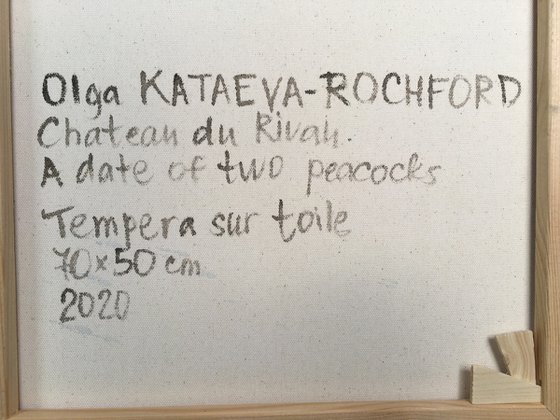 Olga KATAEVA-ROCHFORD
Chateau du Rivau.
A date of two peacocks
Tempera sur toile
70×50 cm
2020